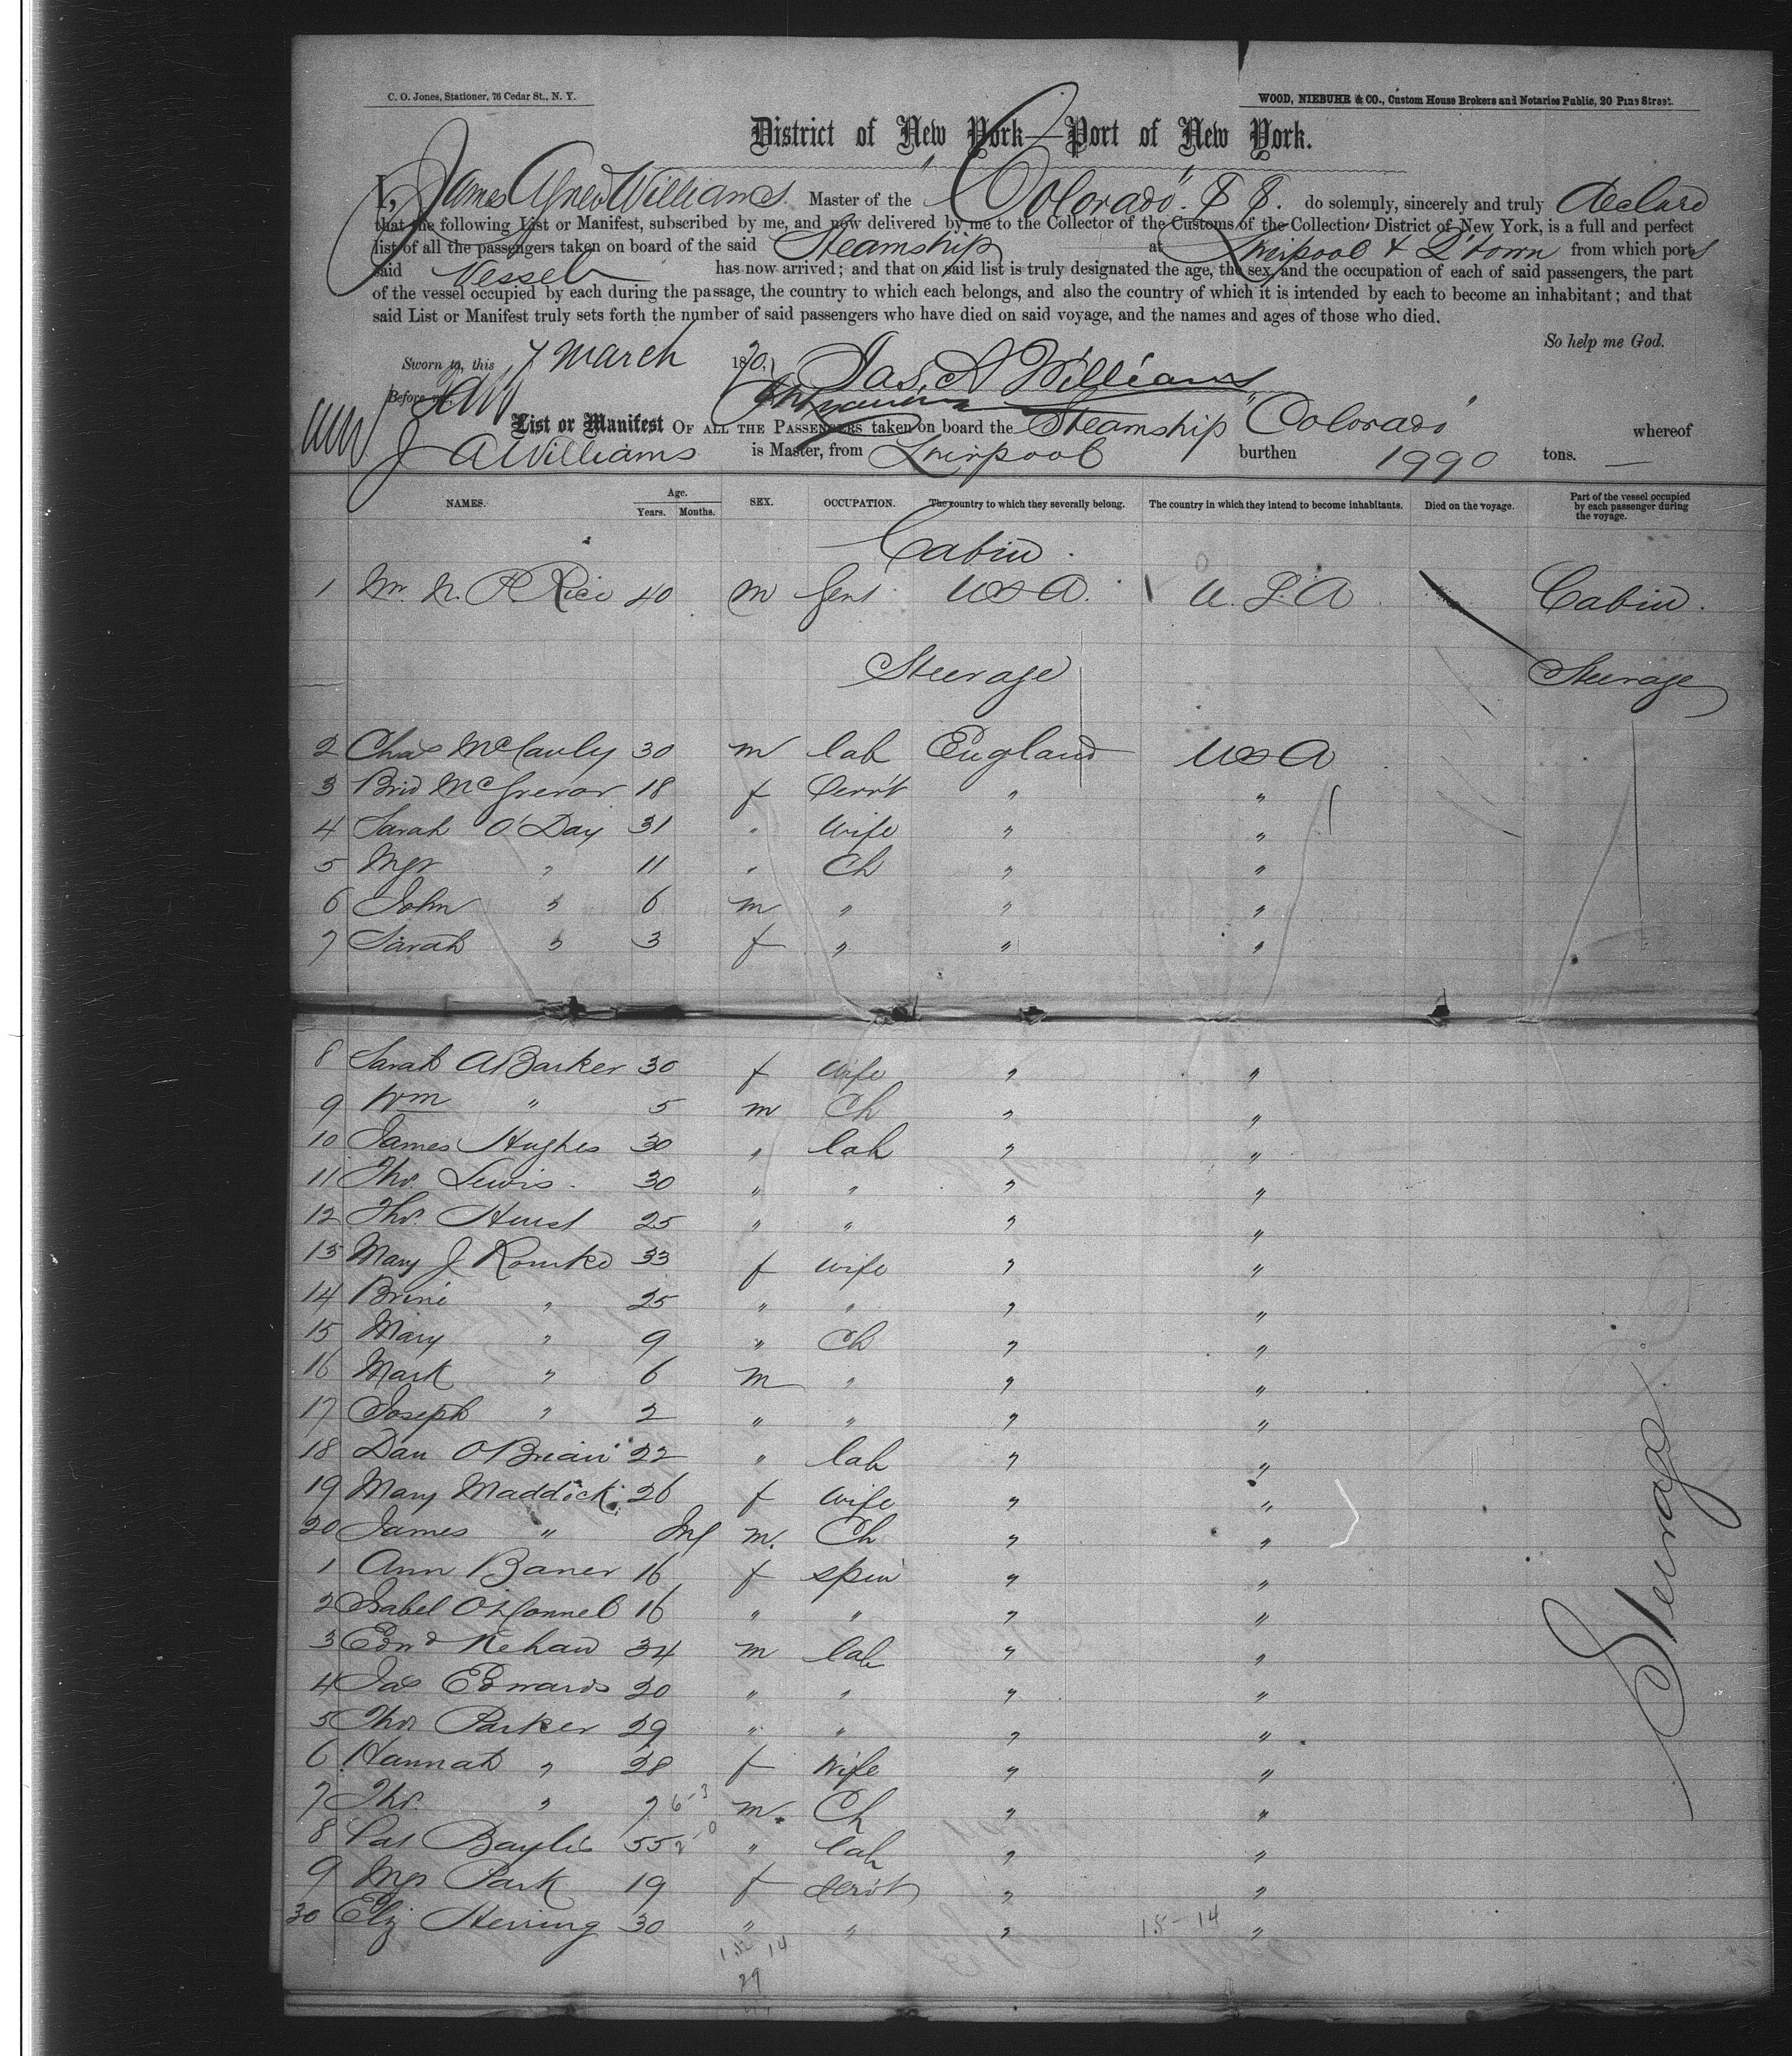 C. O. Jones, Stationer, 76 Cedar St., N. Y.
WOOD, NIEBUHR & CO., Custom House Brokers and Notaries Public, 20 Pine Street.
District of New York—Port of New York.
I, James Agnew Williams Master of the "Colorado" S S. do solemnly, sincerely and truly declare
that the following List or Manifest, subscribed by me, and now delivered by me to the Collector of the Customs of the Collection District of New York, is a full and perfect
list of all the passengers taken on board of the said Steamship at Liverpool & Q'town from which ports
said Vessel has now arrived; and that on said list is truly designated the age, the sex, and the occupation of each of said passengers, the part
of the vessel occupied by each during the passage, the country to which each belongs, and also the country of which it is intended by each to become an inhabitant; and that
said List or Manifest truly sets forth the number of said passengers who have died on said voyage, and the names and ages of those who died.
So help me God.
Sworn to, this 7 March 1870, Jas. A Williams
Before me,
List or Manifest OF ALL THE PASSENGERS taken on board the Steamship "Colorado" whereof
J A Williams is Master, from Liverpool burthen 1990 tons.
NAMES. Age. Years. Months. SEX. OCCUPATION. The country to which they severally belong. The country in which they intend to become inhabitants. Died on the voyage. Part of the vessel occupied by each passenger during the voyage.
Cabin
1 Mr. N. P. Rice 40 m Gent USA. U.S.A Cabin.
Steerage Steerage
2 Chas McCauly 30 m lab England USA
3 Brid McGrevor 18 f Servt " "
4 Sarah O'Day 31 " wife " "
5 Mgr " 11 " Ch " "
6 John " 6 m " " "
7 Sarah " 3 f " " "
8 Sarah A Barker 30 f wife " "
9 Wm " 5 m Ch " "
10 James Hughes 30 " lab " "
11 Thos. Lewis 30 " " " "
12 Thos. Hurst 25 " " " "
13 Mary J Rourke 33 f wife " "
14 " 25 " " " "
15 Mary " 9 " Ch " "
16 Mark " 6 m " " "
17 Joseph " 2 " " " "
18 Dan O'Brien 22 " lab " "
19 Mary Maddock 26 f wife " "
20 James " Inf m. Ch " "
1 Ann Baner 16 f spin " "
2 Isabel O'Connel 16 " " " "
3 Edwd Kehaw 34 m lab " "
4 Jas Edwards 20 " " " "
5 Thos Parker 29 " " " "
6 Hannah " 28 f Wife " "
7 Thos. " 7 6-3 m. Ch " "
8 Pat Baylis 55 2-0 " lab " "
9 Mgr Park 19 f servt " "
30 Eliz Herring 30 " " " "
Steerage
15 - 14
15 14
29